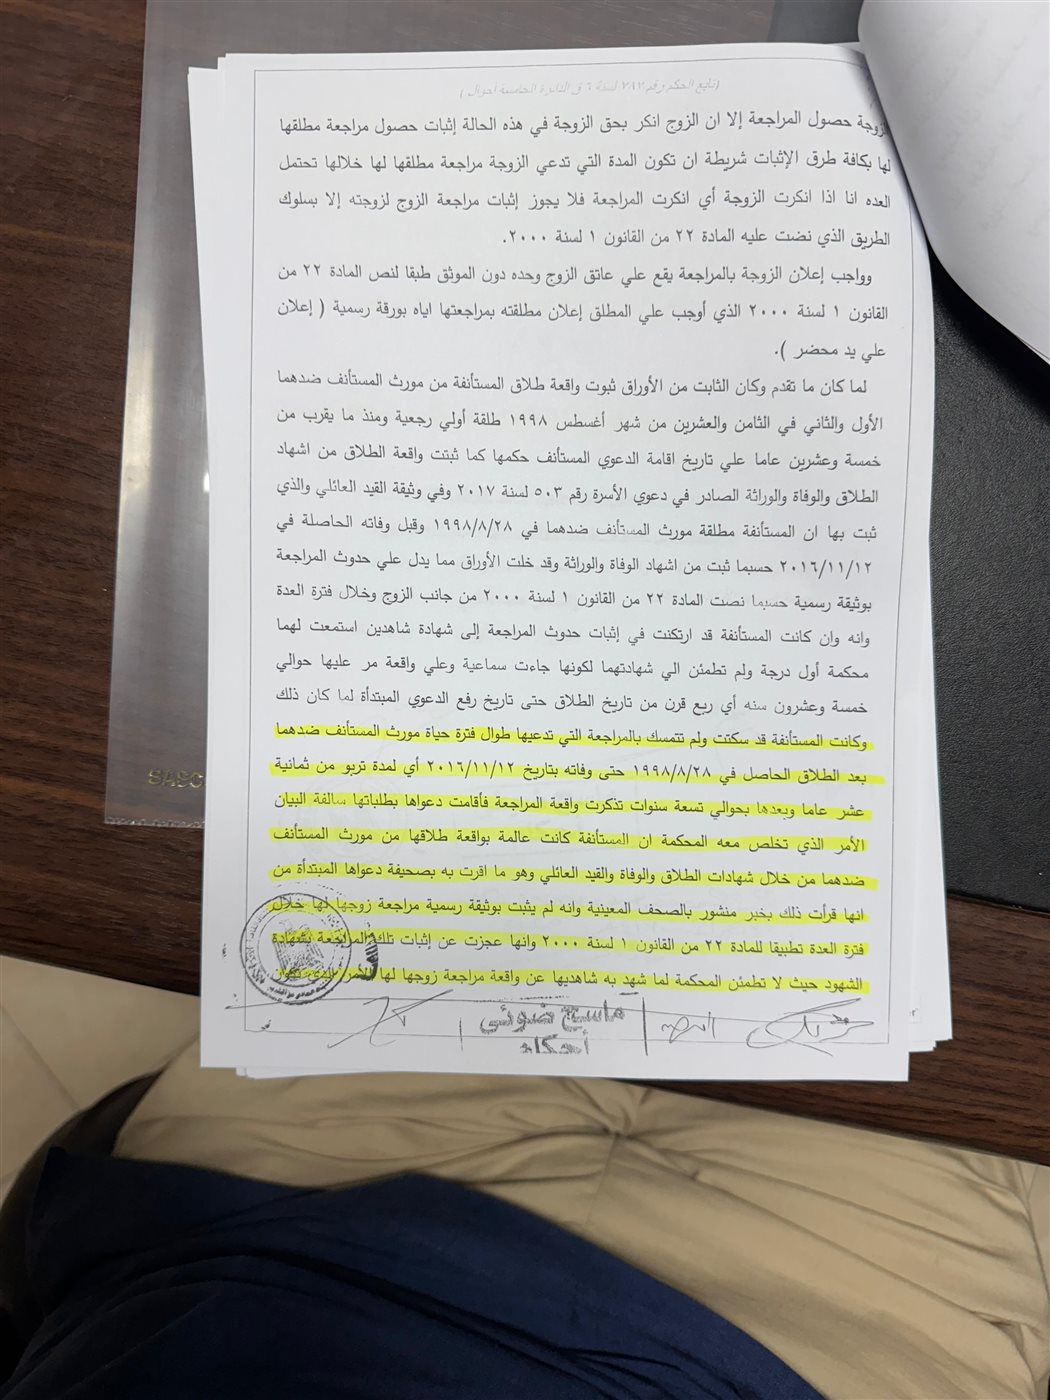 (تابع الحكم رقم ٧٨٢ لسنة ٦ ق الدائرة الخامسة احوال )
الزوجة حصول المراجعة إلا ان الزوج انكر بحق الزوجة في هذه الحالة إثبات حصول مراجعة مطلقها
لها بكافة طرق الإثبات شريطة ان تكون المدة التي تدعي الزوجة مراجعة مطلقها لها خلالها تحتمل
العده انا اذا انكرت الزوجة أي انكرت المراجعة فلا يجوز إثبات مراجعة الزوج لزوجته إلا بسلوك
الطريق الذي نضت عليه المادة ٢٢ من القانون ١ لسنة ٢٠٠٠.
وواجب إعلان الزوجة بالمراجعة يقع علي عاتق الزوج وحده دون الموثق طبقا لنص المادة ٢٢ من
القانون ١ لسنة ٢٠٠٠ الذي أوجب علي المطلق إعلان مطلقته بمراجعتها اياه بورقة رسمية ( إعلان
علي يد محضر ).
لما كان ما تقدم وكان الثابت من الأوراق ثبوت واقعة طلاق المستأنفة من مورث المستأنف ضدهما
الأول والثاني في الثامن والعشرين من شهر أغسطس ١٩٩٨ طلقة أولي رجعية ومنذ ما يقرب من
خمسة وعشرين عاما علي تاريخ اقامة الدعوي المستأنف حكمها كما ثبتت واقعة الطلاق من اشهاد
الطلاق والوفاة والوراثة الصادر في دعوي الأسرة رقم ٥٠٣ لسنة ٢٠١٧ وفي وثيقة القيد العائلي والذي
ثبت بها ان المستأنفة مطلقة مورث المستأنف ضدهما في ١٩٩٨/٨/٢٨ وقبل وفاته الحاصلة في
٢٠١٦/١١/١٢ حسبما ثبت من اشهاد الوفاة والوراثة وقد خلت الأوراق مما يدل علي حدوث المراجعة
بوثيقة رسمية حسبما نصت المادة ٢٢ من القانون ١ لسنة ٢٠٠٠ من جانب الزوج وخلال فترة العدة
وانه وان كانت المستأنفة قد ارتكنت في إثبات حدوث المراجعة إلى شهادة شاهدين استمعت لهما
محكمة أول درجة ولم تطمئن الي شهادتهما لكونها جاءت سماعية وعلي واقعة مر عليها حوالي
خمسة وعشرون سنه أي ربع قرن من تاريخ الطلاق حتى تاريخ رفع الدعوي المبتدأة لما كان ذلك
وكانت المستأنفة قد سكتت ولم تتمسك بالمراجعة التي تدعيها طوال فترة حياة مورث المستأنف ضدهما
بعد الطلاق الحاصل في ١٩٩٨/٨/٢٨ حتى وفاته بتاريخ ٢٠١٦/١١/١٢ أي لمدة تربو من ثمانية
عشر عاما وبعدها بحوالي تسعة سنوات تذكرت واقعة المراجعة فأقامت دعواها بطلباتها سالفة البيان
الأمر الذي تخلص معه المحكمة ان المستأنفة كانت عالمة بواقعة طلاقها من مورث المستأنف
ضدهما من خلال شهادات الطلاق والوفاة والقيد العائلي وهو ما اقرت به بصحيفة دعواها المبتدأة من
انها قرأت ذلك بخبر منشور بالصحف المعينية وانه لم يثبت بوثيقة رسمية مراجعة زوجها لها خلال
فترة العدة تطبيقا للمادة ٢٢ من القانون ١ لسنة ٢٠٠٠ وانها عجزت عن إثبات تلك المراجعة بشهادة
الشهود حيث لا تطمئن المحكمة لما شهد به شاهديها عن واقعة مراجعة زوجها لها الأمر الذي
ماسح ضوئي
أحكام